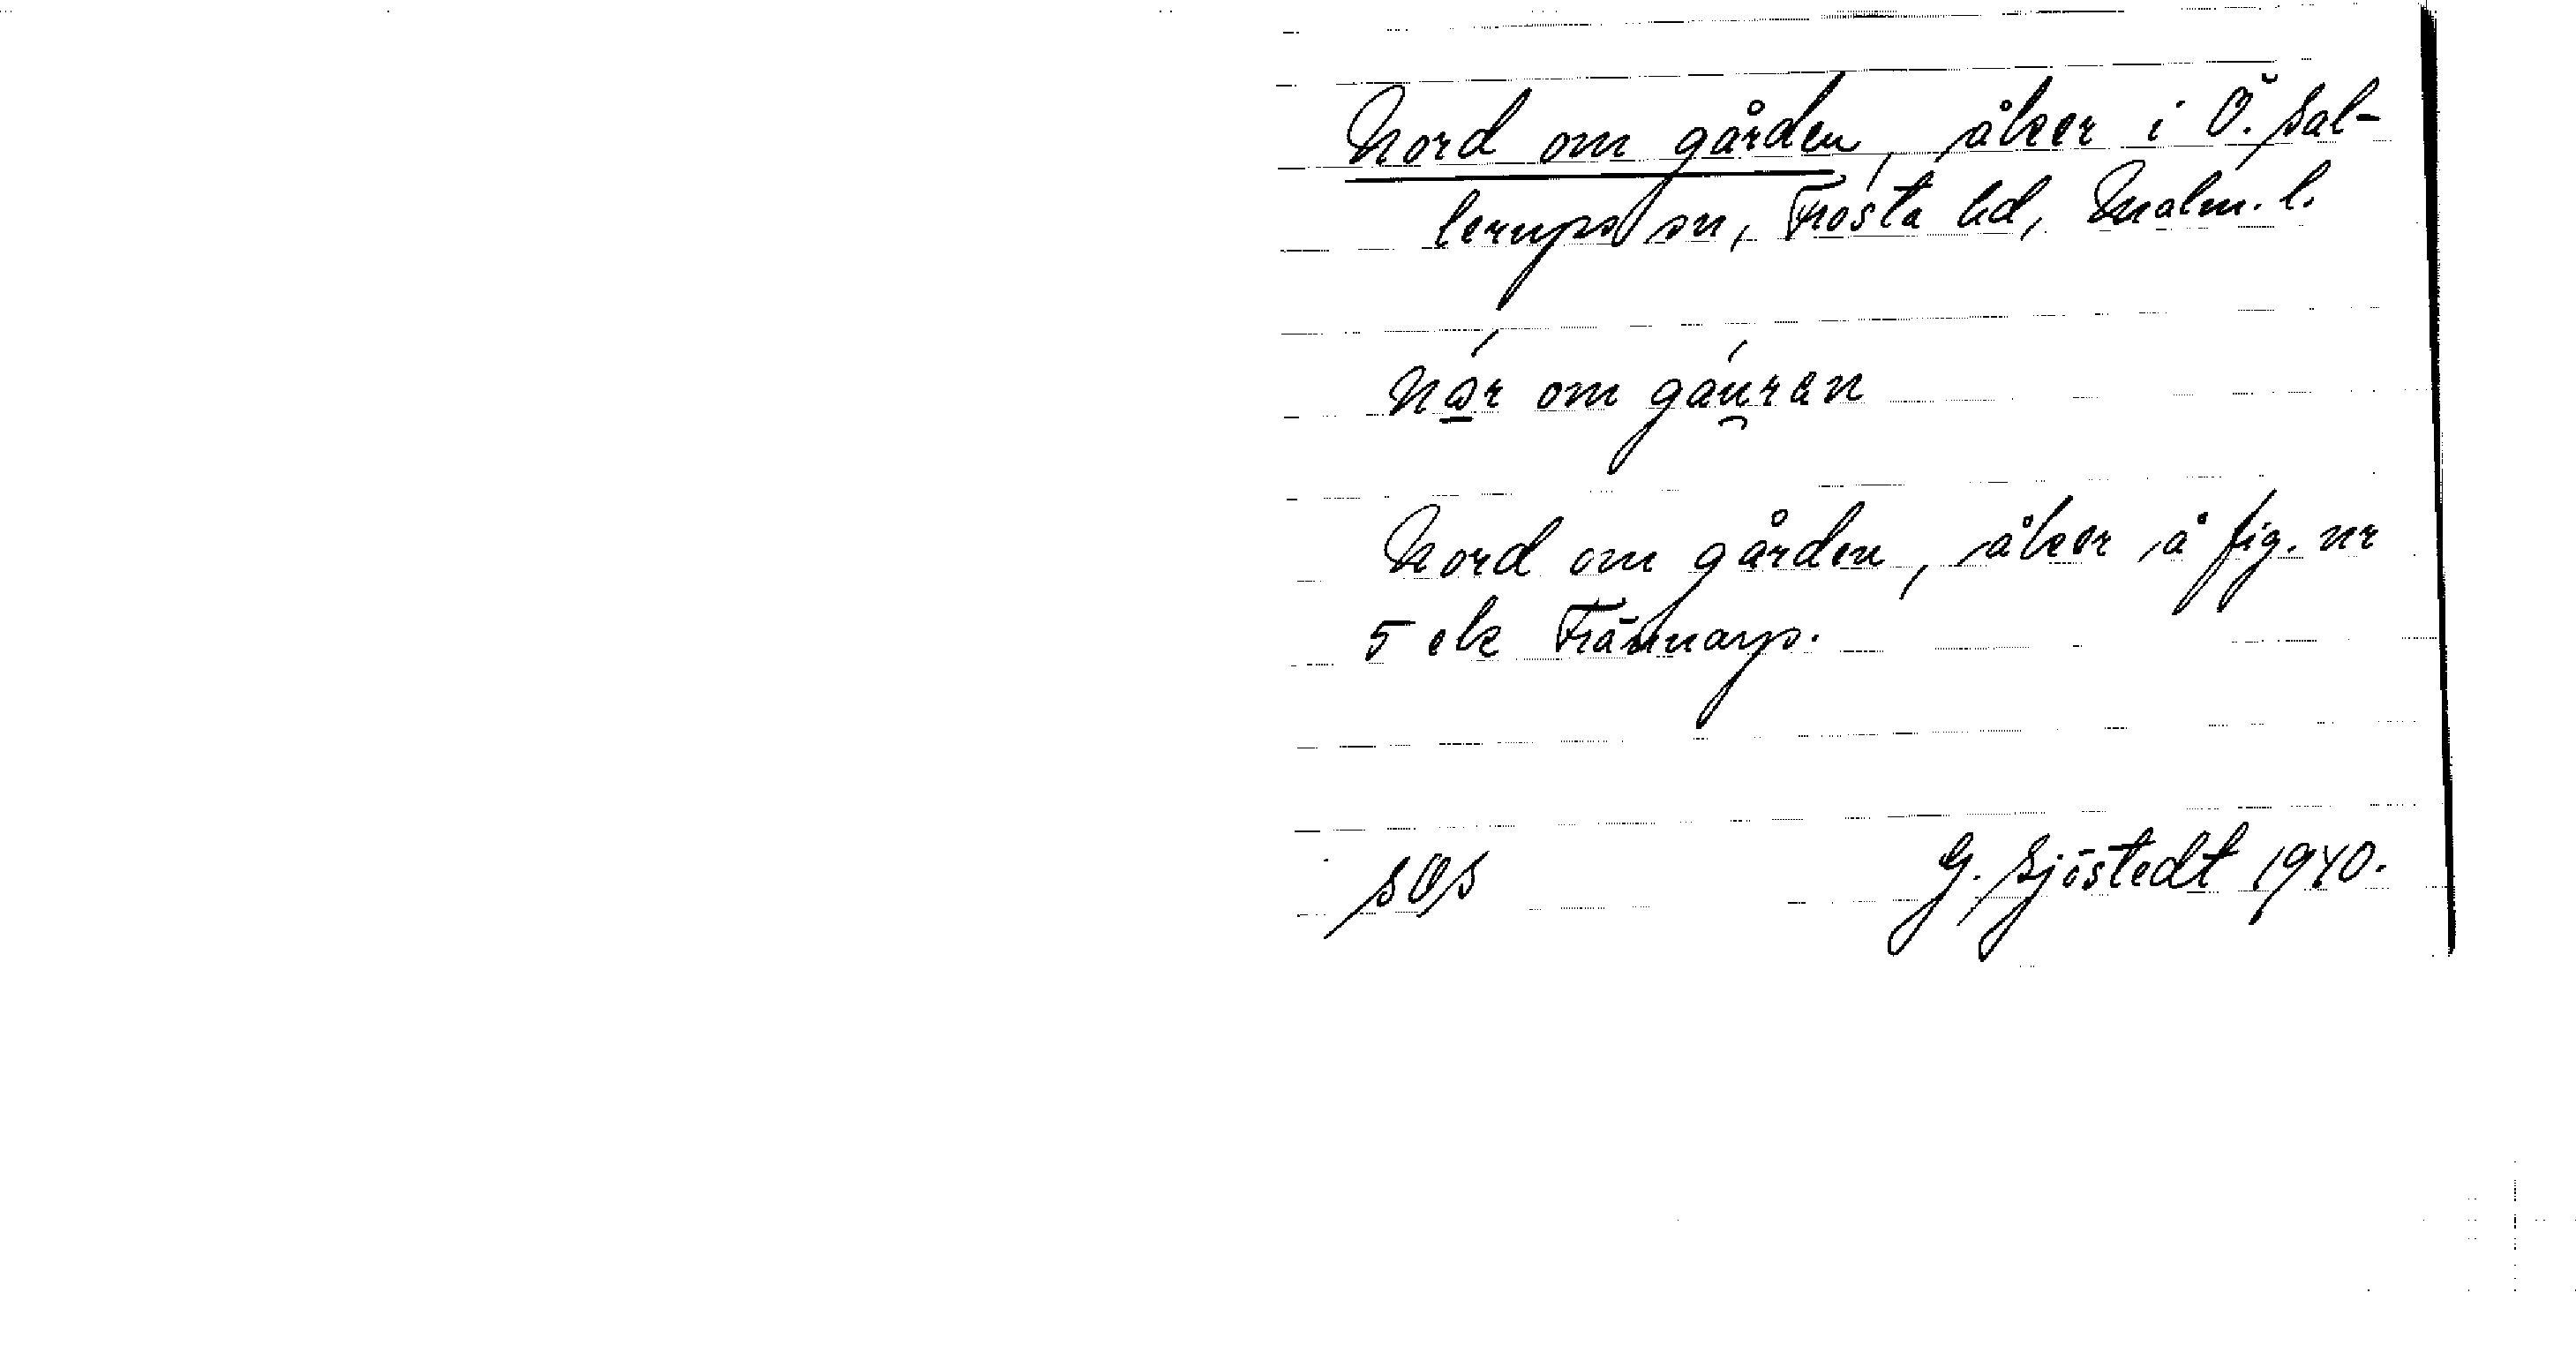 Nord om gården, åker i Ö. Sal-
lerups sn, Frosta hd, Malm. l.
når om gáu̯ran
Nord om gården, åker å fig. nr
5 ek Fränarp.
SOS G. Sjöstedt 1940.